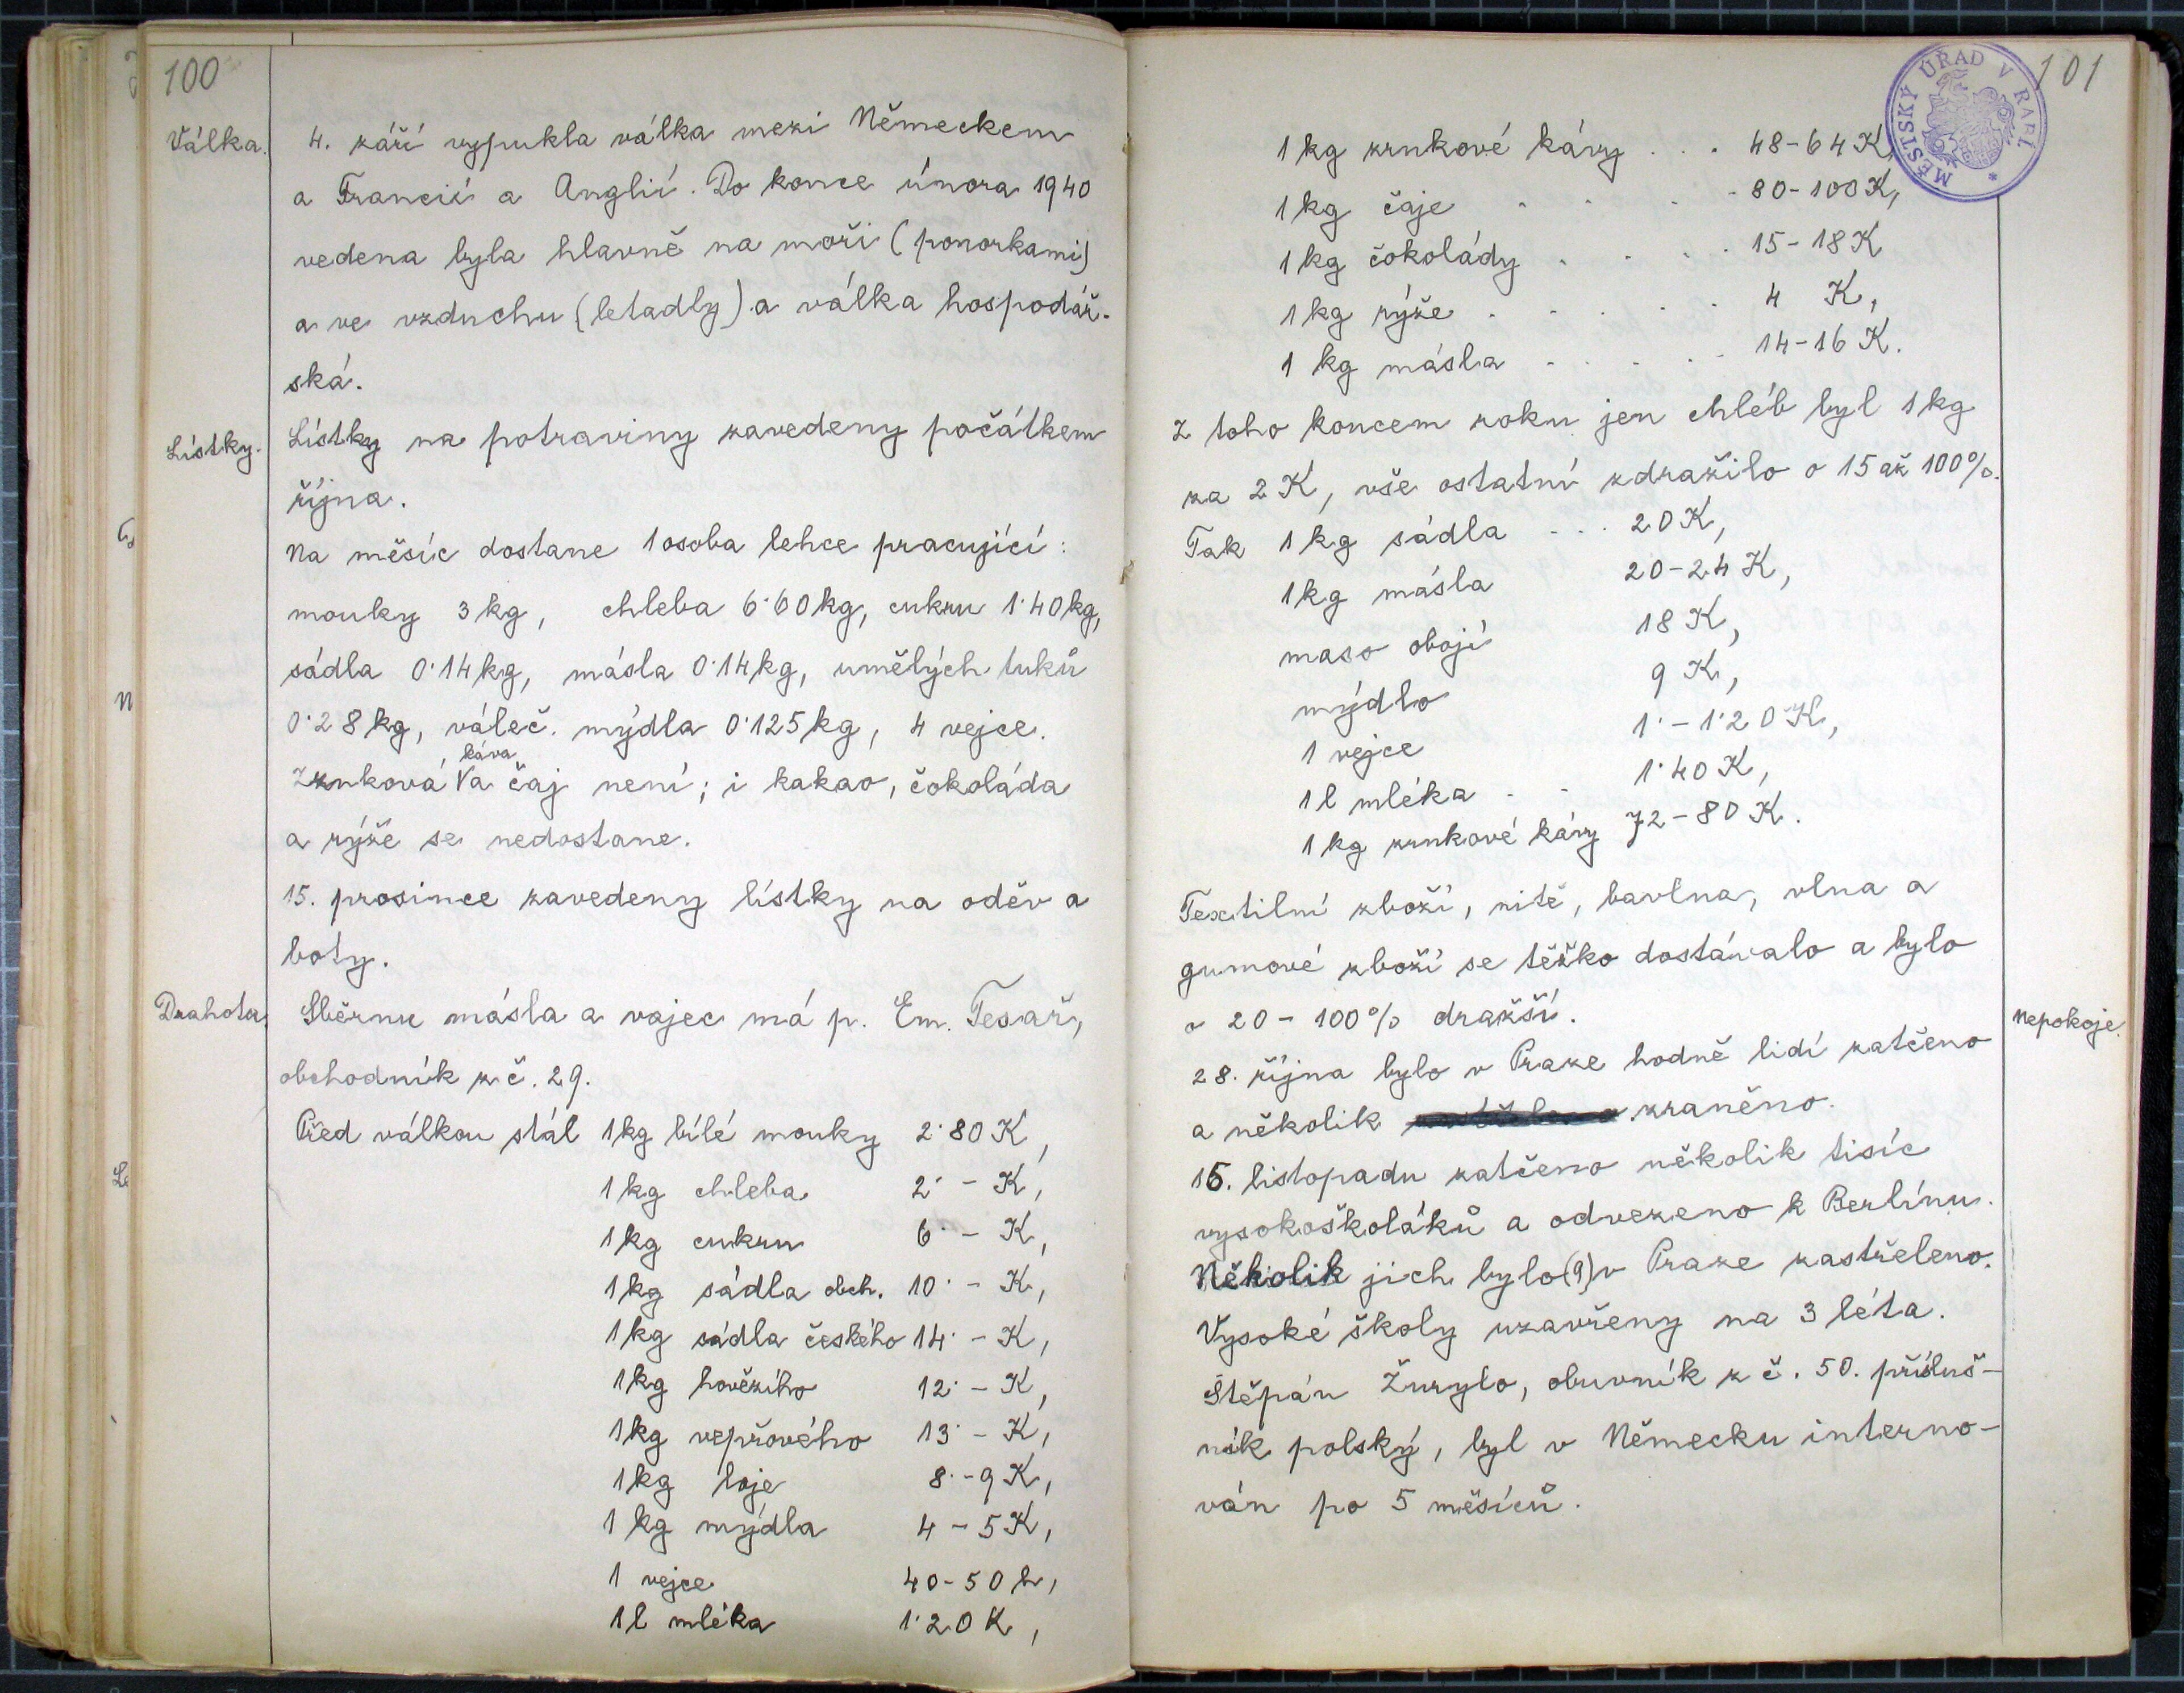 100
Válka.
4. září vypukla válka mezi Německem
a Francií a Anglií. Do konce února 1940
vedena byla hlavně na moři (ponorkami)
a ve vzduchu (letadly) a válka hospodář-
ská.
Lístky.
Lístky na potraviny zavedeny počátkem
října.
Na měsíc dostane 1 osoba lehce pracující:
mouky 3 kg, chleba 6·60 kg, cukru 1·40 kg,
sádla 0·14 kg, másla 0·14 kg, umělých tuků
0·28 kg, váleč. mýdla 0·125 kg, 4 vejce.
káva
Zrnková V a čaj není; i kakao, čokoláda
a rýže se nedostane.
15. prosince zavedeny lístky na oděv a
boty.
Drahota.
Sběrnu másla a vajec má p. Em. Tesař,
obchodník z č. 29.
Před válkou stál 1 kg bílé mouky 2·80 K,
1 kg chleba 2·- K,
1 kg cukru 6·- K,
1 kg sádla obch. 10·- K,
1 kg sádla českého 14·- K,
1 kg hovězího 12·- K,
1 kg vepřového 13·- K,
1 kg loje 8·-9 K,
1 kg mýdla 4-5 K,
1 vejce 40-50 h,
1 l mléka 1·20 K,
101
MĚSTSKÝ ÚŘAD V
1 kg zrnkové kávy . . . 48-64 K,
1 kg čaje . . . . 80-100 K,
1 kg čokolády . . . . 15-18 K
1 kg rýže . . . . . 4 K,
1 kg másla . . . . . 14-16 K.
Z toho koncem roku jen chléb byl 1 kg
za 2 K, vše ostatní zdražilo o 15 až 100%.
Tak 1 kg sádla . . . 20 K,
1 kg másla 20-24 K,
maso obojí 18 K,
mýdlo 9 K,
1 vejce 1·-1·20 K,
1 l mléka . . 1·40 K,
1 kg zrnkové kávy 72-80 K.
Textilní zboží, nitě, bavlna, vlna a
gumové zboží se těžko dostávalo a bylo
o 20-100% dražší.
Nepokoje.
28. října bylo v Praze hodně lidí zatčeno
a několik zraněno.
15. listopadu zatčeno několik tisíc
vysokoškoláků a odvezeno k Berlínu.
Několik jich bylo (9) v Praze zastřeleno.
Vysoké školy uzavřeny na 3 léta.
Štěpán Žurylo, obuvník z č. 50. přísluš-
ník polský, byl v Německu interno-
ván po 5 měsíců.